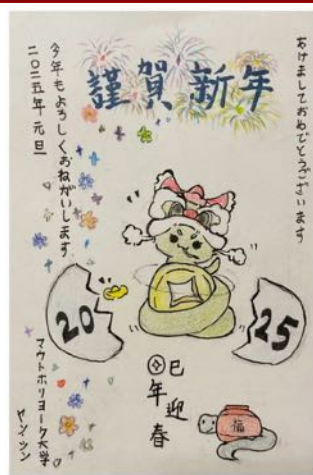 あけましておめでとうございます
謹賀新年
今年もよろしくおねがいします
二〇二五年 元旦
20
25
巳年迎春
福
マウトホリヨーク大学
ヤンツン